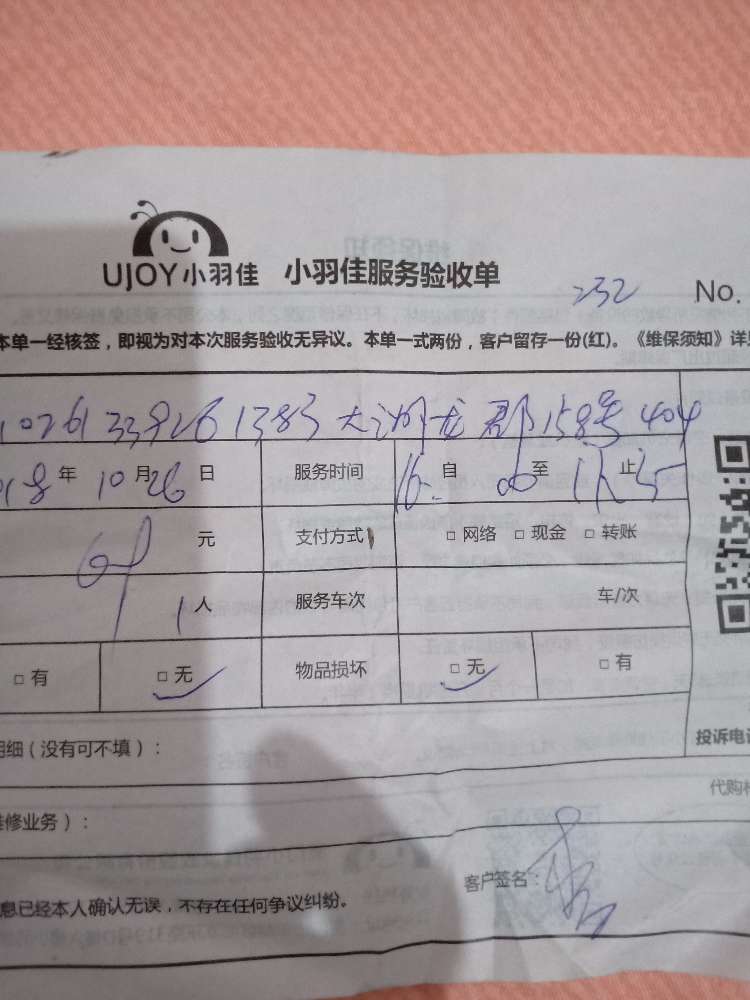 UJOY小羽佳 小羽佳服务验收单
232 No.
本单一经核签，即视为对本次服务验收无异议。本单一式两份，客户留存一份(红)。《维保须知》详见
1383 大湖龙郡158号404
年 10月26日 服务时间 自 至 止
元 支付方式 □ 网络 □ 现金 □ 转账
1人 服务车次 车/次
□ 有 □ 无 物品损坏 □ 无 □ 有
明细（没有可不填）： 投诉电话
维修业务）： 代购材
客户签名：
息已经本人确认无误，不存在任何争议纠纷。